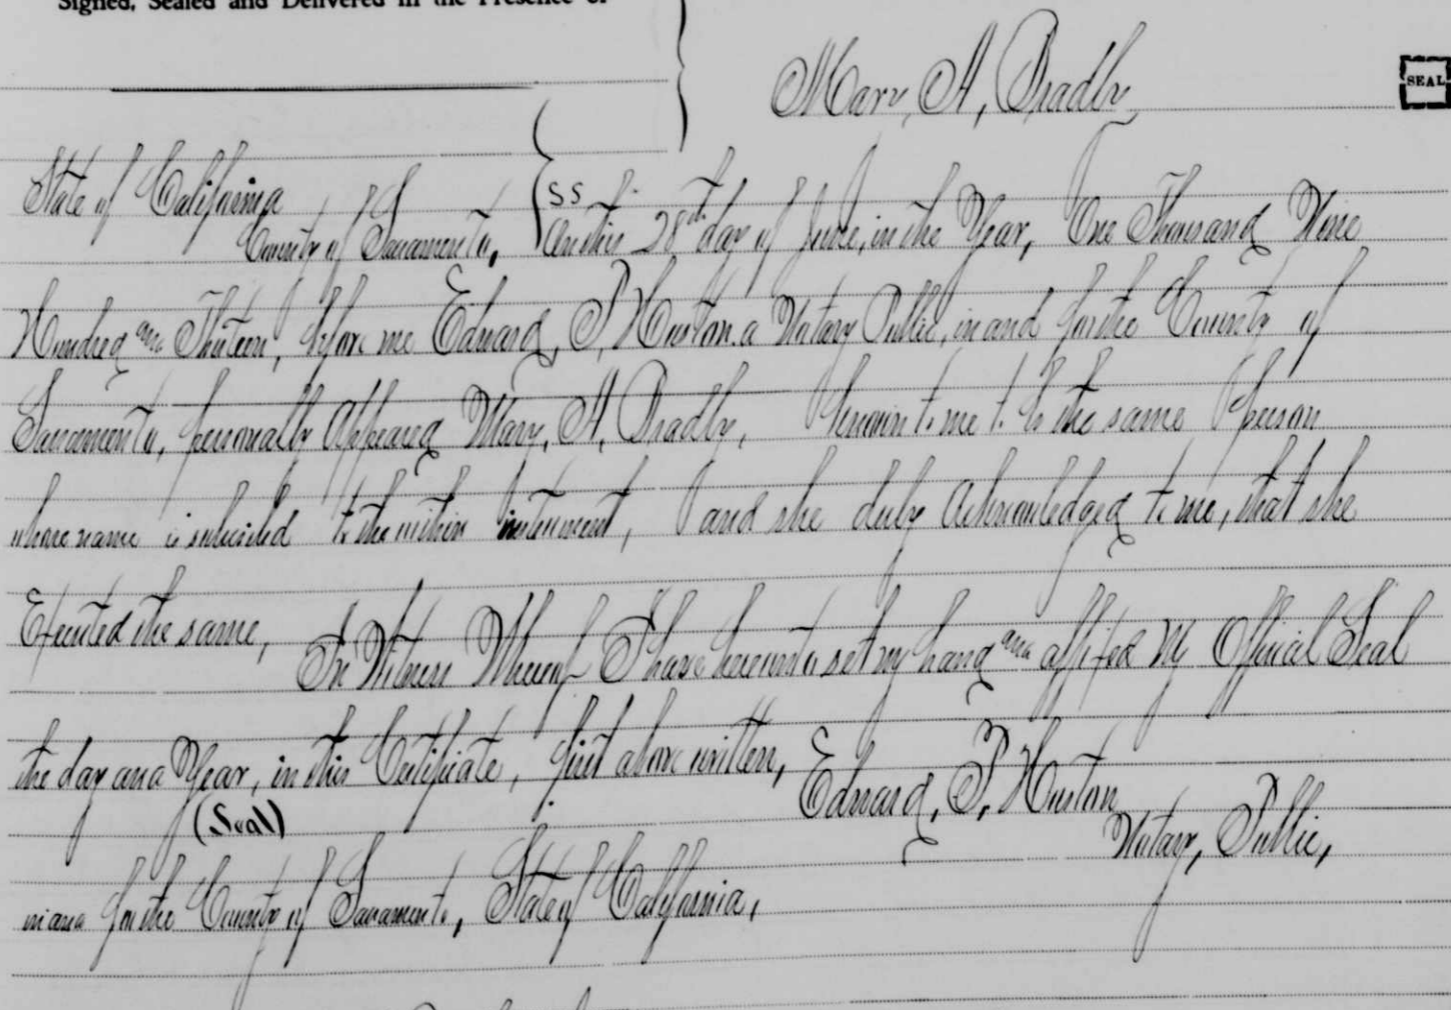 Signed, Sealed and Delivered in the Presence of
Mary, A, Bradly,
SEAL
State of California
County of Sacramento, } SS
On this 28th day of June, in the Year, One Thousand Nine
Hundred and Thirteen, before me Edward, P, Huston. a Notary Public, in and for the County of
Sacramento, personally Appeared Mary, A, Bradly, known to me to be the same person
whose name is subscribed to the within instrument, and she duly Acknowledged to me, that she
Executed the same, In Witness Whereof I have hereunto set my hand and affixed My Official Seal
the day and Year, in this Certificate, first above written, Edward, P, Huston
(Seal)
Notary, Public,
in and for the County of Sacramento, State of California,